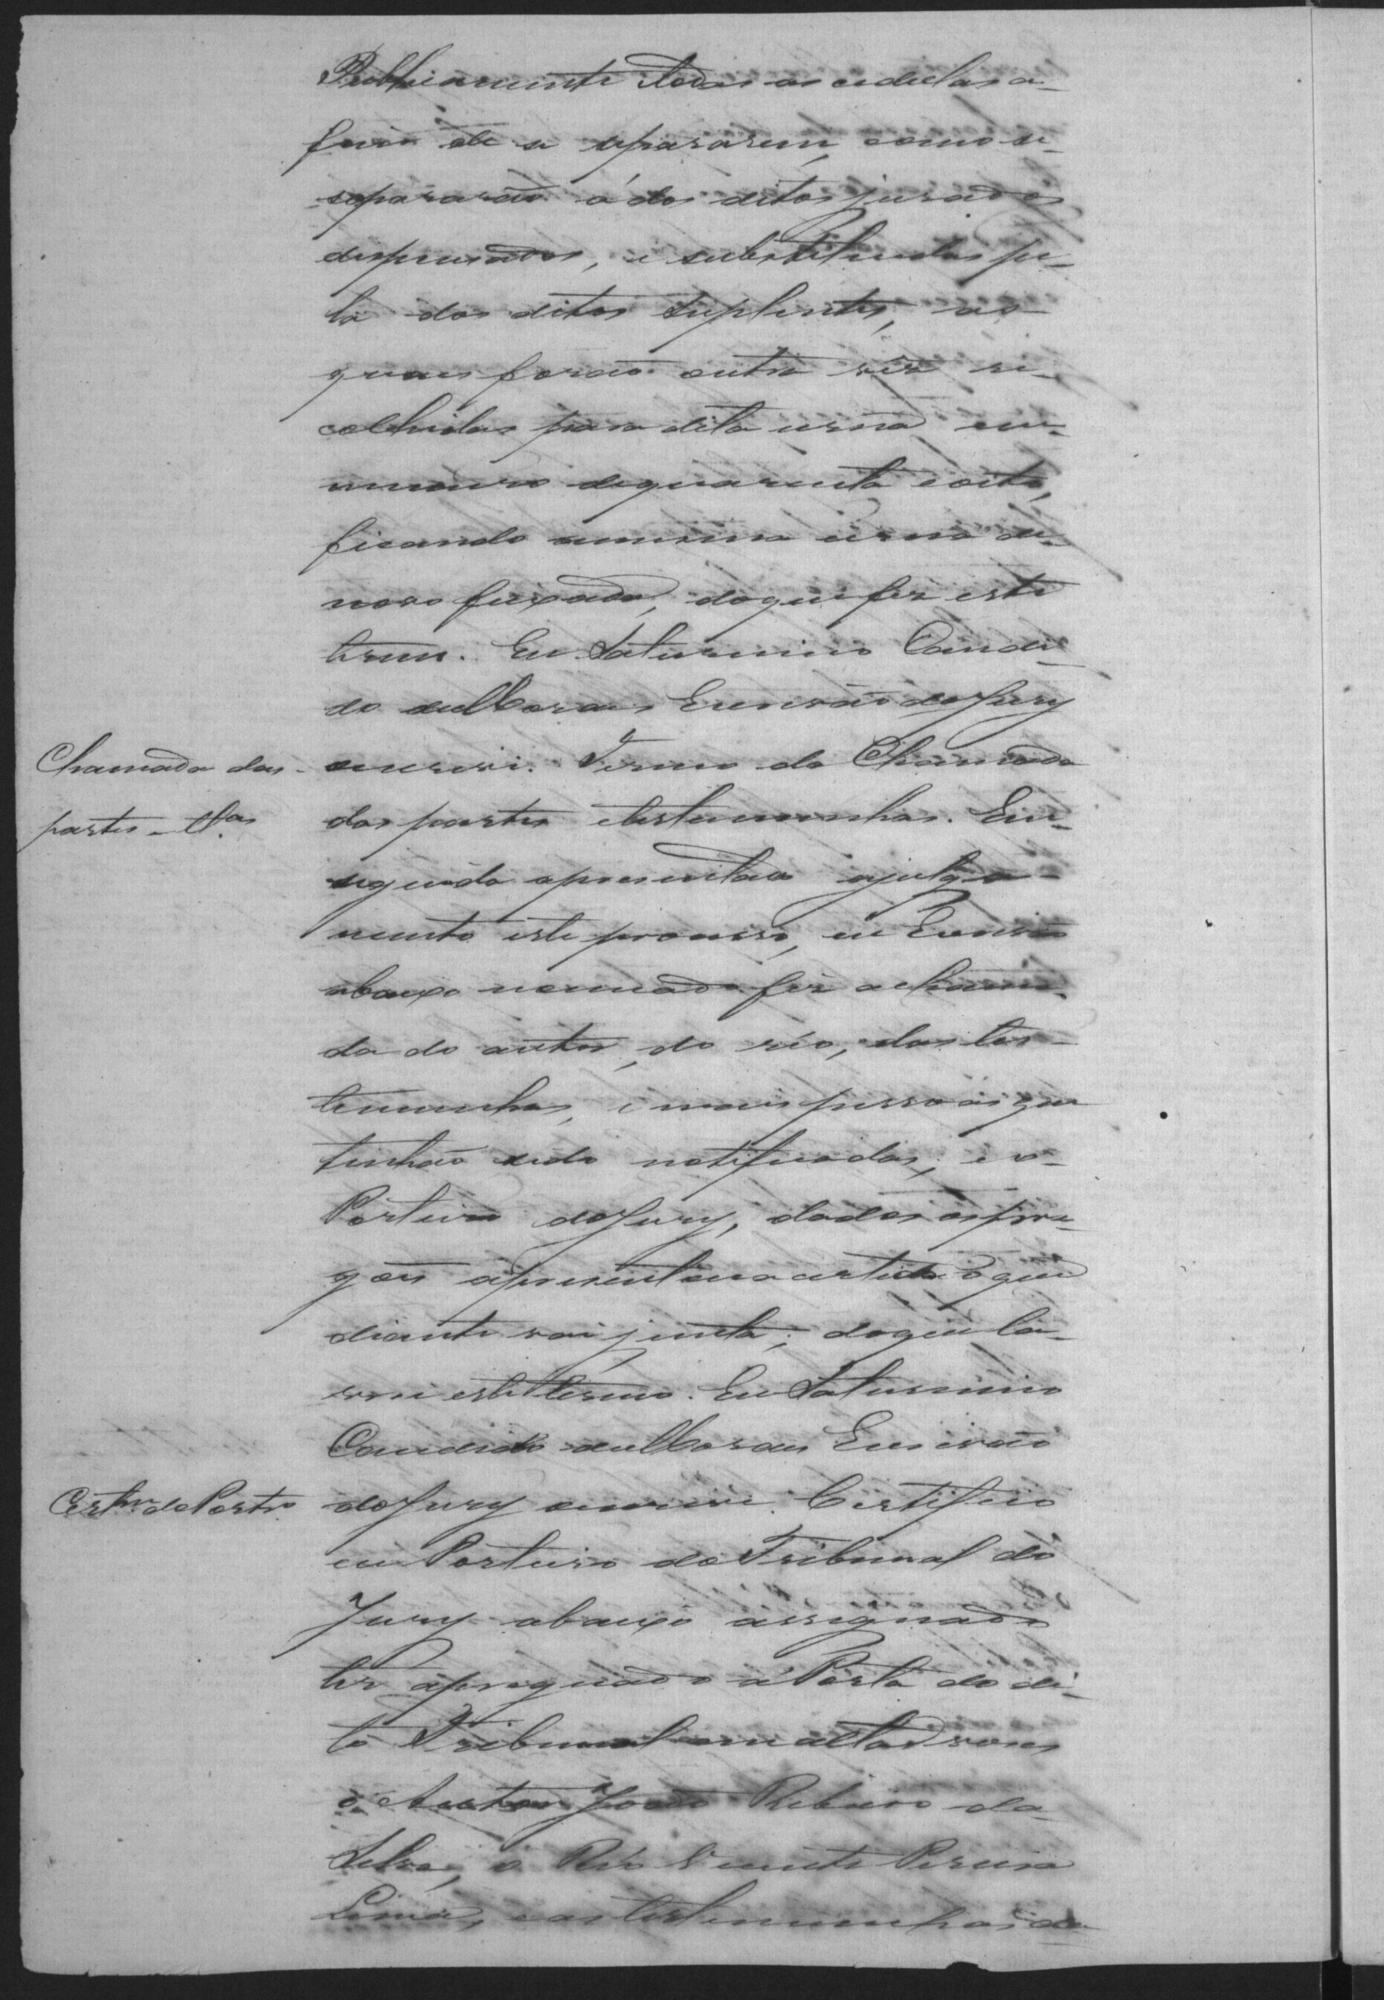 Publicamente todas as cedulas a
fim de se separarem, como se
separarão a dos ditos jurados
dispensados, e substituidas pe-
la dos ditos suplentes, as
quais forão outra vêz re-
colhidas para dita urna em
numero de quarenta e oito,
ficando a mesma urna de
novo fixada, do que fiz este
termo. Eu Saturnino Candi-
do de Moraes Escrivão do Jury
escrevi. Termo de Chamada
Chamada das
partes e t.as
das partes e testemunhas. Em
seguida apresentado a julga-
mento este processo, eu Escrivão
abaixo nomeado fiz a chama-
da do autor, do réo, das tes-
temunhas, e mais pessoas que
tinhão sido notificadas; e o
Porteiro do Jury, dados os pre-
gões apresentou a certidão que
diante vai junta; do que la-
vrei este termo. Eu Saturnino
Candido de Moraes Escrivão
do Jury escrevi. Certifico
Cert.m do Portr.o
eu Porteiro do Tribunal do
Jury abaixo assignado
ter apregoado á Porta do di-
to Tribunal em altas vozes
o Autor João Ribeiro da
Silva, o Réo Vicente Pereira
Lima, e as testemunhas da